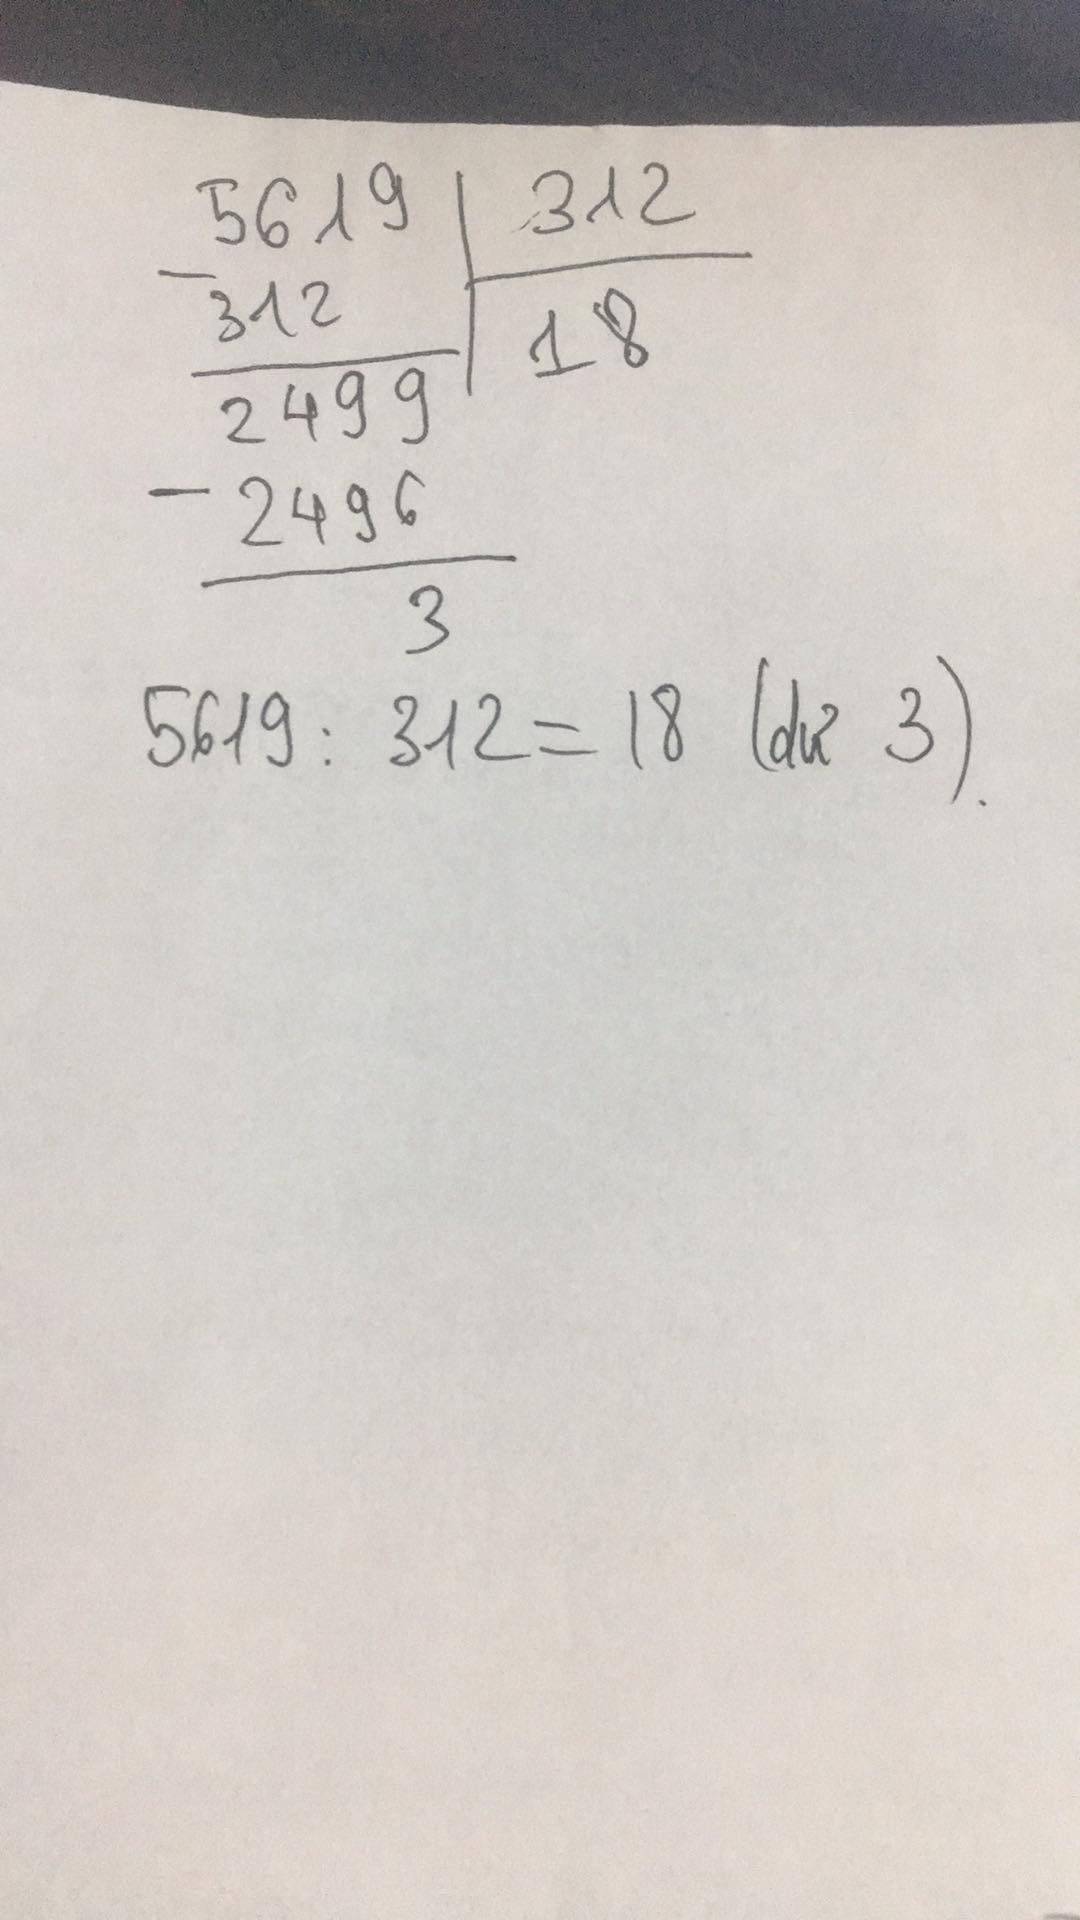 5619 312
- 312 18
2499
- 2496
3
5619 : 312 = 18 (dư 3).